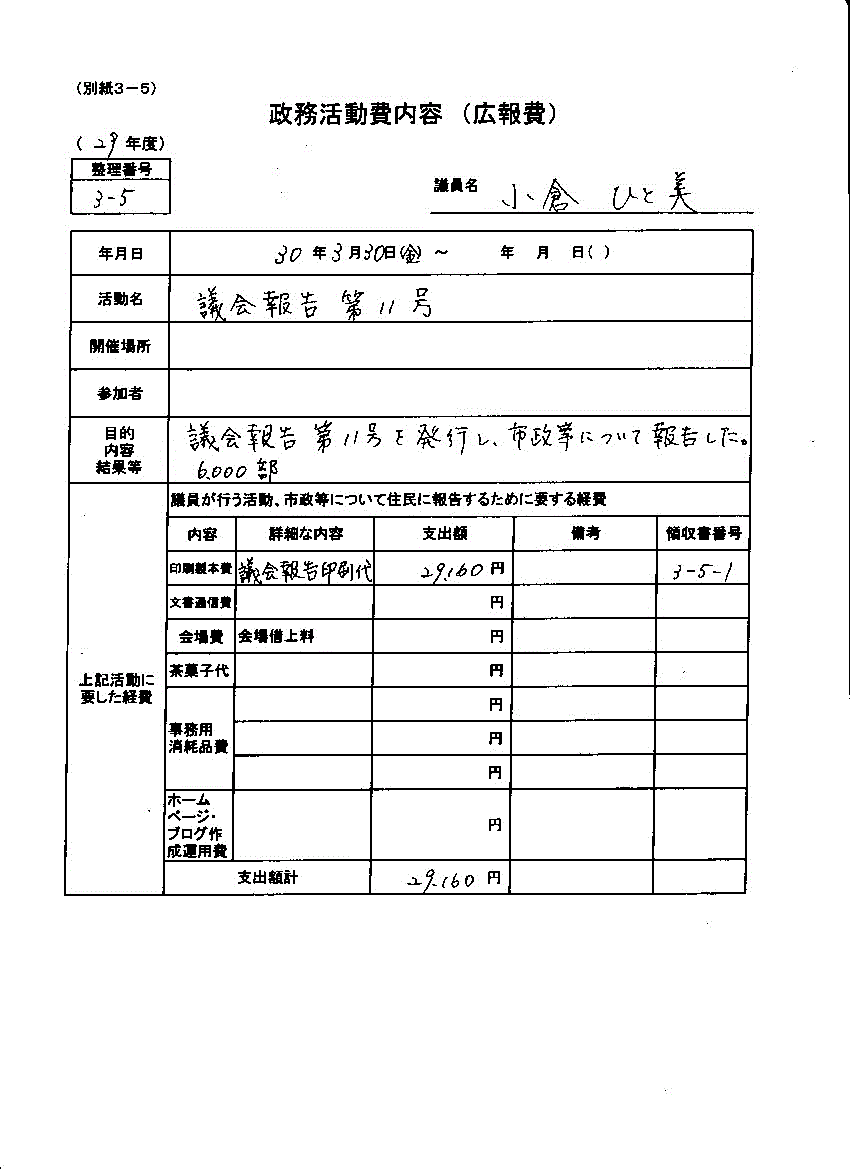 （別紙3－5）
政務活動費内容（広報費）
（29年度）
整理番号
3-5
議員名 小倉 ひと美
年月日 30年3月30日(金) ～ 年 月 日( )
活動名 議会報告 第11号
開催場所
参加者
目的
内容
結果等
議会報告 第11号を発行し、市政等について報告した。
6,000部
上記活動に
要した経費
議員が行う活動、市政等について住民に報告するために要する経費
内容 詳細な内容 支出額 備考 領収書番号
印刷製本費 議会報告印刷代 29,160円 3-5-1
文書通信費 円
会場費 会場借上料 円
茶菓子代 円
事務用
消耗品費
円
円
円
ホーム
ページ・
ブログ作
成運用費
円
支出額計 29,160円